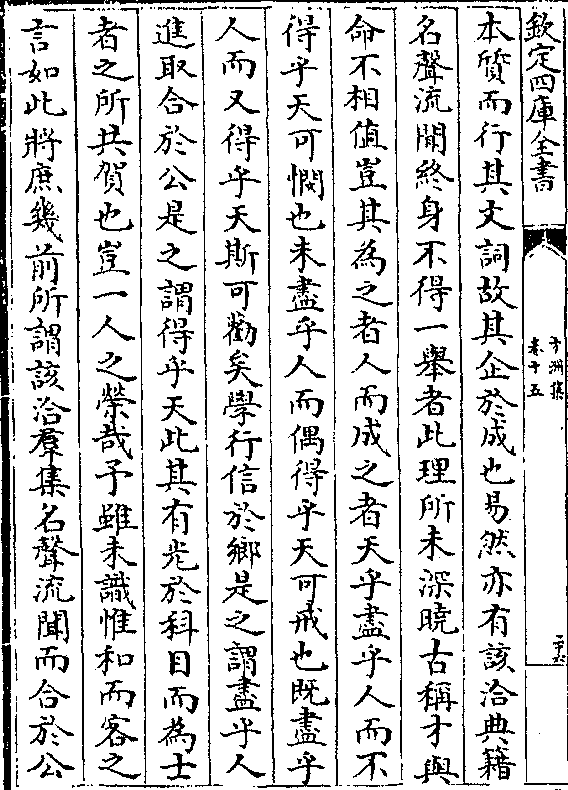 欽定四庫全書
方洲集
卷十五
二十六
本質而行其文詞故其企於成也易然亦有該洽典籍
名聲流聞終身不得一舉者此理所未深曉古稱才與
命不相值豈其為之者人而成之者天乎盡乎人而不
得乎天可憫也未盡乎人而偶得乎天可戒也既盡乎
人而又得乎天斯可勸矣學行信於鄉是之謂盡乎人
進取合於公是之謂得乎天此其有光於科目而為士
者之所共賀也豈一人之榮哉予雖未識惟和而客之
言如此將庶幾前所謂該洽羣集名聲流聞而合於公